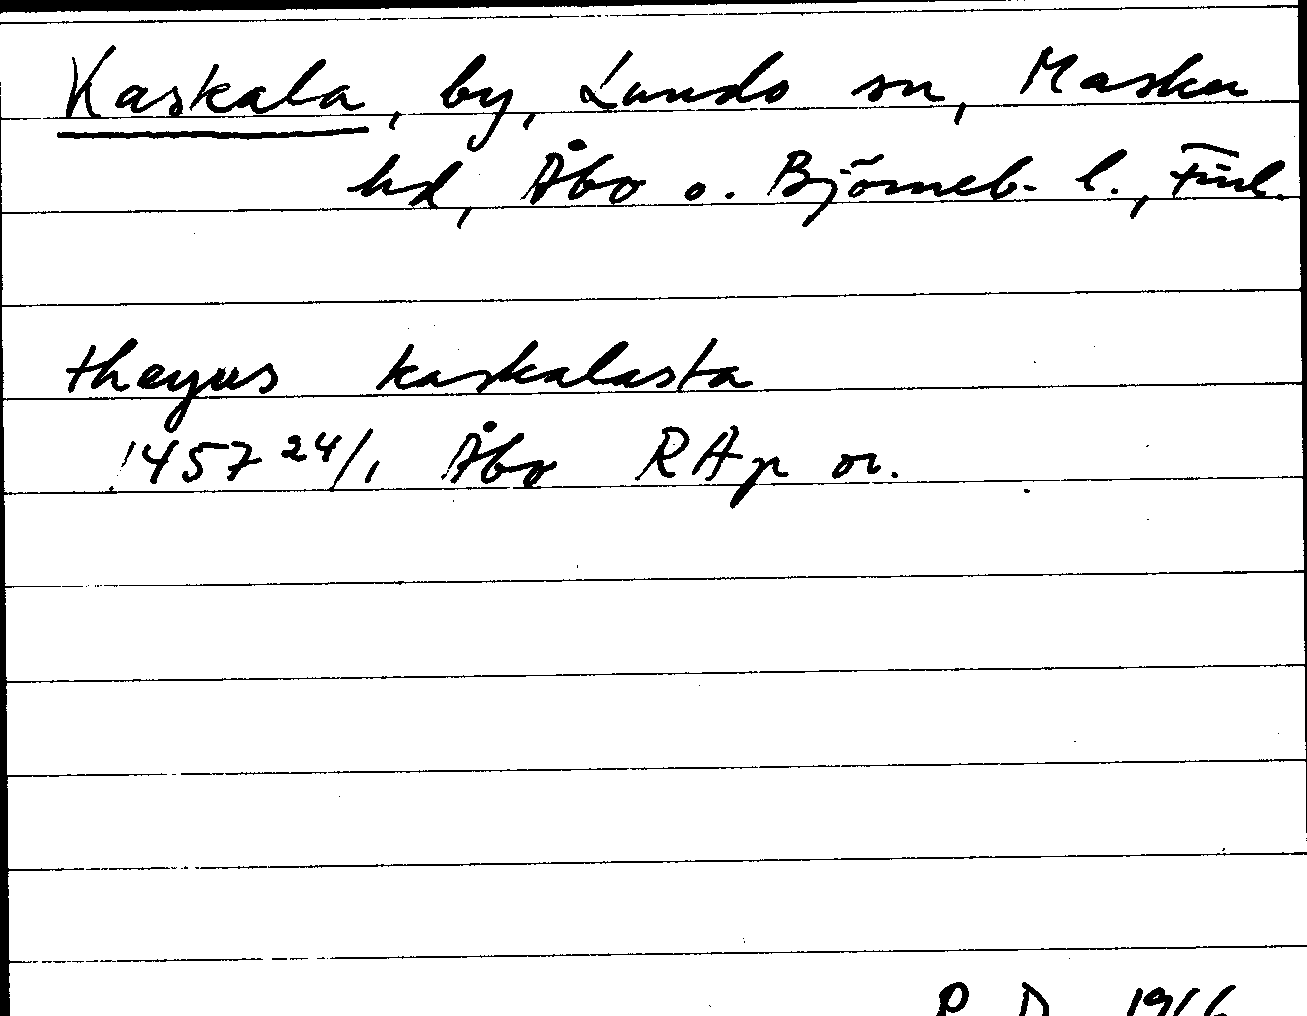 Kaskala, by, Lundo sn, Masku
hd, Åbo o. Björneb. l., Finl.
theyus kaskalasta
1457 24/1 Åbo RAp or.
R D 1966